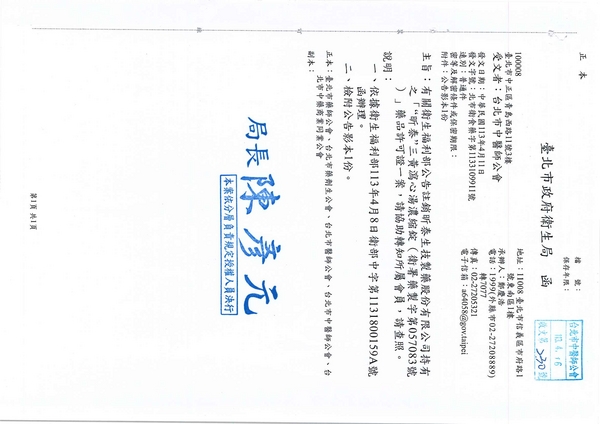 正 本
檔 號：
保存年限：
臺北市政府衛生局 函
台北市中醫師公會
113. 4. 16
收文第 號
100008
臺北市中正區青島西路11號3樓
受文者：台北市中醫師公會
地址：11008 臺北市信義區市府路1
號東南區1樓
承辦人：鄭慶浩
電話：1999(外縣市02-27208889)
轉7077
傳真：02-27205321
電子信箱：a64058@gov.taipei
發文日期：中華民國113年4月11日
發文字號：北市衛食藥字第1133109911號
速別：普通件
密等及解密條件或保密期限：
附件：公告影本1份
主旨：有關衛生福利部公告註銷昕泰生技製藥股份有限公司持有
之「"昕泰"三黃瀉心湯濃縮錠（衛署藥製字第057083號
）」藥品許可證一案，請協助轉知所屬會員，請查照。
說明：
一、依據衛生福利部113年4月8日衛部中字第1131800159A號
函辦理。
二、檢附公告影本1份。
正本：臺北市藥師公會、台北市藥劑生公會、台北市醫師公會、台北市中醫師公會、台
北市中藥商業同業公會
副本：
局長 陳彥元
本案依分層負責規定授權人員決行
第1頁 共1頁